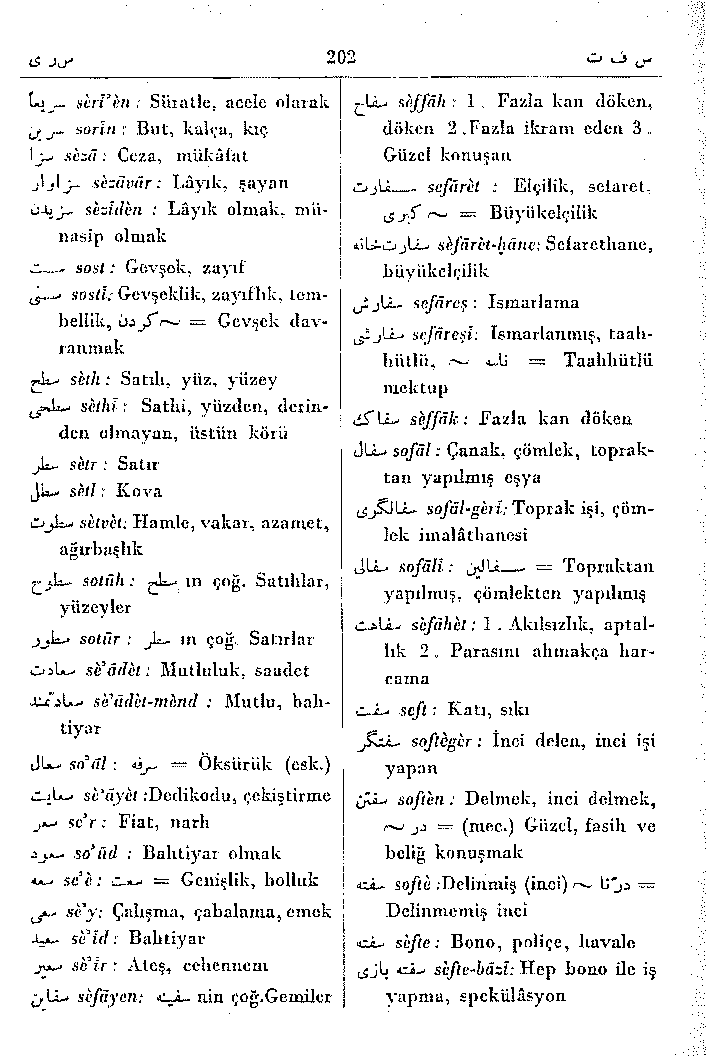 س ر ی
202
س ف ت
سریعاً sèrî’èn : Süratle, acele olarak
سرین sorîn : But, kalça, kıç
سزا sèzâ : Ceza, mükâfat
سزاوار sèzâvâr : Lâyık, şayan
سزیدن sèzîdèn : Lâyık olmak, mü-
nasip olmak
سست sost : Gevşek, zayıf
سستی sostî: Gevşeklik, zayıflık, tem-
bellik, ~ کردن = Gevşek dav-
ranmak
سطح sèth : Satıh, yüz, yüzey
سطحی sèthî : Sathi, yüzden, derin-
den olmayan, üstün körü
سطر sètr : Satır
سطل sètl : Kova
سطوت sètvèt: Hamle, vakar, azamet,
ağırbaşlık
سطوح sotûh : سطح ın çoğ. Satıhlar,
yüzeyler
سطور sotûr : سطر ın çoğ. Satırlar
سعادت sè’âdèt : Mutluluk, saadet
سعادتمند sè’âdèt-mènd : Mutlu, bah-
tiyar
سعال so’âl : سرفه = Öksürük (esk.)
سعایت sè’âyèt :Dedikodu, çekiştirme
سعر se’r : Fiat, narh
سعود so’ûd : Bahtiyar olmak
سعه se’è : سعت = Genişlik, bolluk
سعی sè’y: Çalışma, çabalama, emek
سعید sè’îd : Bahtiyar
سعیر sè’îr : Ateş, cehennem
سفاین sèfâyen: سفینه nin çoğ.Gemiler
سفاح sèffâh : 1 . Fazla kan döken,
döken 2 .Fazla ikram eden 3 .
Güzel konuşan
سفارت sefârèt : Elçilik, sefaret,
~ کبری = Büyükelçilik
سفارت‌خانه sèfârèt-hâne: Sefarethane,
büyükelçilik
سفارش sefâreş : Ismarlama
سفارشی sefâreşî: Ismarlanmış, taah-
hütlü, ~ نامه = Taahhütlü
mektup
سفاك sèffâk : Fazla kan döken
سفال sofâl : Çanak, çömlek, toprak-
tan yapılmış eşya
سفالگری sofâl-gèrî: Toprak işi, çöm-
lek imalâthanesi
سفالی sofâlî : سفالین = Topraktan
yapılmış, çömlekten yapılmış
سفاهت sèfâhèt : 1 . Akılsızlık, aptal-
lık 2 . Parasını ahmakça har-
cama
سفت seft : Katı, sıkı
سفتگر softègèr : İnci delen, inci işi
yapan
سفتن softèn : Delmek, inci delmek,
~ در = (mec.) Güzel, fasih ve
beliğ konuşmak
سفته softè :Delinmiş (inci) ~ درّنا =
Delinmemiş inci
سفته sèfte : Bono, poliçe, havale
سفته بازی sèfte-bâzî: Hep bono ile iş
yapma, spekülâsyon